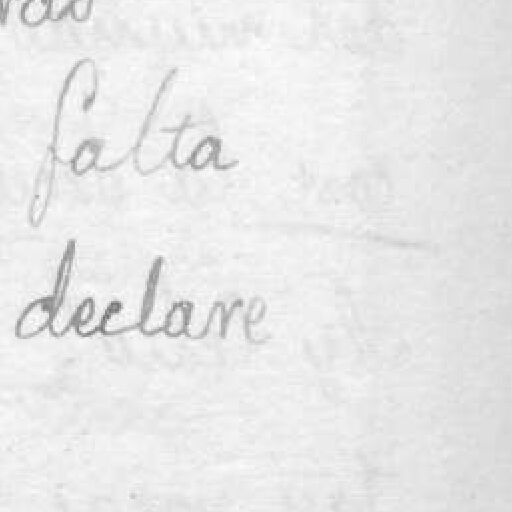 falta
declare